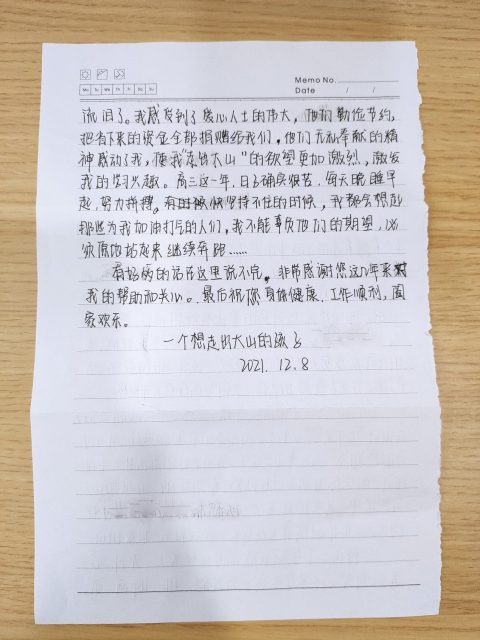 Memo No.
Mo Tu We Th Fr Sa Su
Date / /
流泪了。我感受到了爱心人士的伟大，他们勤俭节约，
把省下来的资金全部捐赠给我们，他们无私奉献的精
神感动了我，使我"走出大山"的欲望更加激烈，激发
我的学习兴趣。高三这一年，日子确实很苦，每天晚睡早
起，努力拼搏。坚持不住的时候，我都会想起
那些为我加油打气的人们，我不能辜负他们的期望，必
须原地站起来继续奔跑……
有好多的话在这里说不完。非常感谢您这几年来对
我的帮助和关心。最后祝你身体健康、工作顺利，阖
家欢乐。
一个想走出大山的孩子
2021. 12. 8